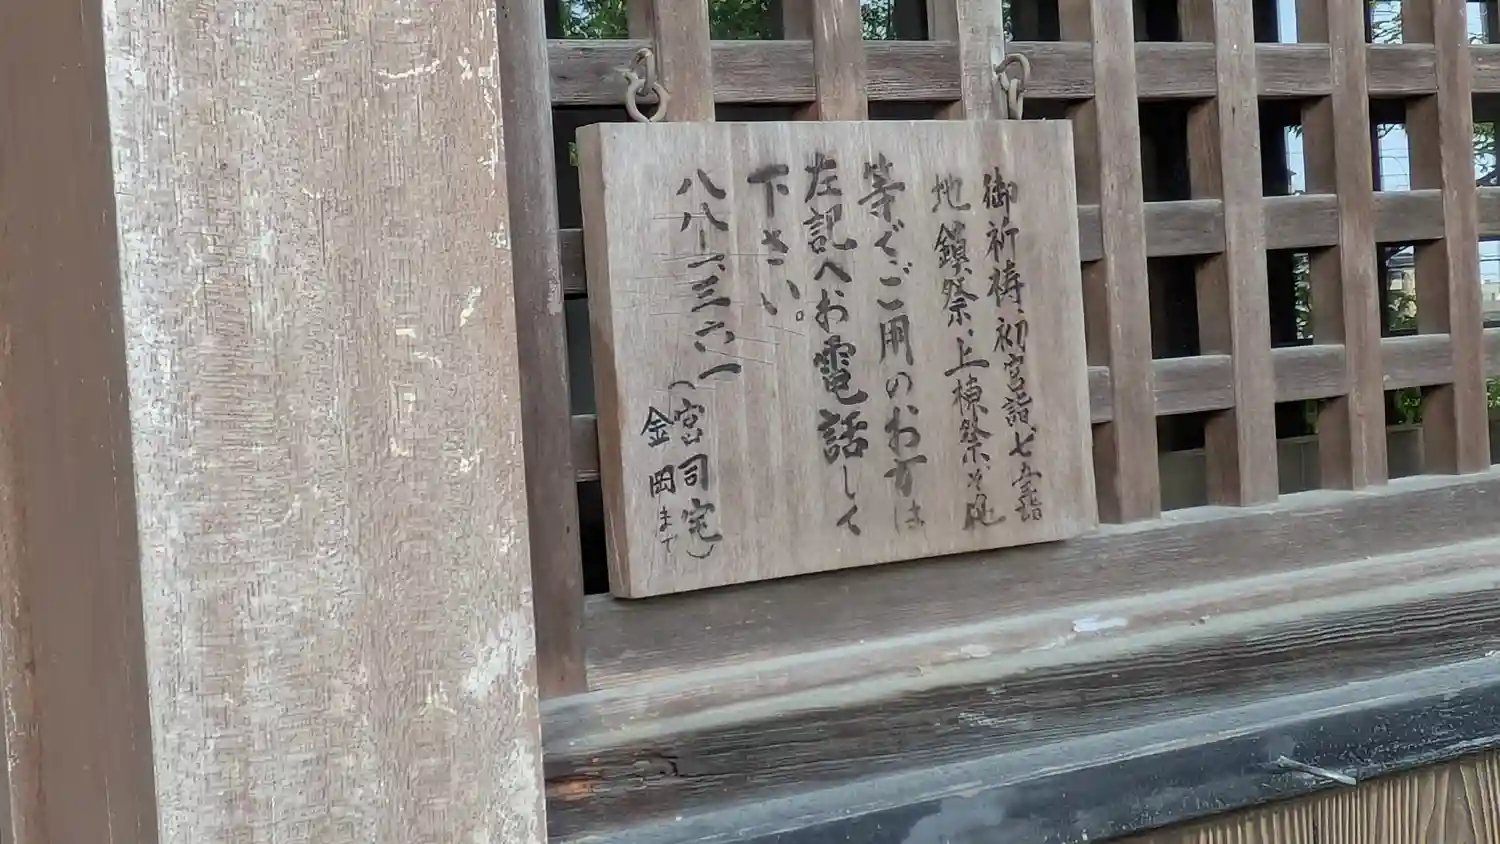 御祈祷、初宮詣、七五三詣
地鎮祭、上棟祭、その他
等でご用のお方は
左記へお電話して
下さい。
八八―一三六一
(宮司宅)
金岡まで